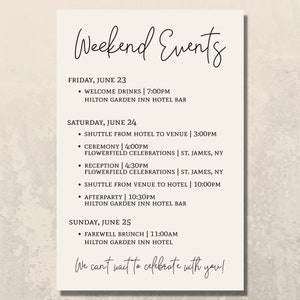 Weekend Events
FRIDAY, JUNE 23
• WELCOME DRINKS | 7:00PM
HILTON GARDEN INN HOTEL BAR
SATURDAY, JUNE 24
• SHUTTLE FROM HOTEL TO VENUE | 3:00PM
• CEREMONY | 4:00PM
FLOWERFIELD CELEBRATIONS | ST. JAMES, NY
• RECEPTION | 4:30PM
FLOWERFIELD CELEBRATIONS | ST. JAMES, NY
• SHUTTLE FROM VENUE TO HOTEL | 10:00PM
• AFTERPARTY | 10:30PM
HILTON GARDEN INN HOTEL BAR
SUNDAY, JUNE 25
• FAREWELL BRUNCH | 11:00AM
HILTON GARDEN INN HOTEL
We can't wait to celebrate with you!